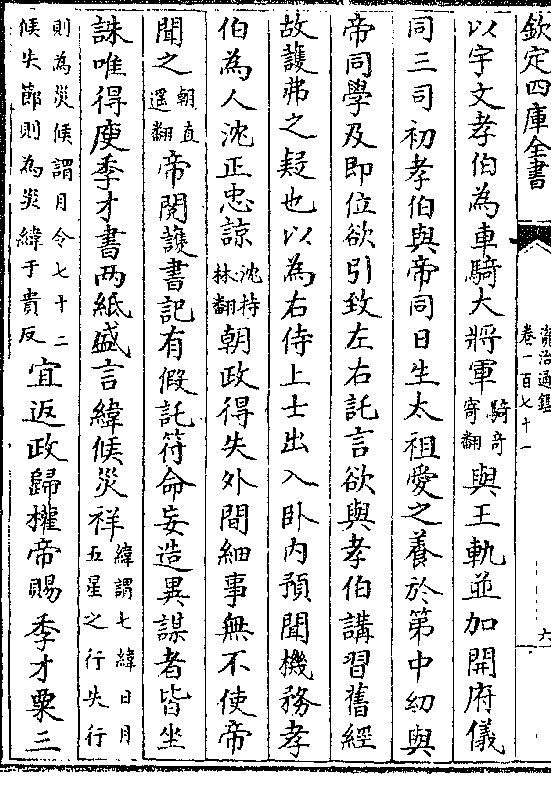 欽定四庫全書
資治通鑑
卷一百七十一
六
以宇文孝伯為車騎大將軍騎奇寄翻與王軌並加開府儀
同三司初孝伯與帝同日生太祖愛之養於第中幼與
帝同學及即位欲引致左右託言欲與孝伯講習舊經
故護弗之疑也以為右侍上士出入卧内預聞機務孝
伯為人沈正忠諒沈持林翻朝政得失外間細事無不使帝
聞之朝直遥翻帝閱護書記有假託符命妄造異謀者皆坐
誅唯得庾季才書兩紙盛言緯候災祥緯謂七緯日月五星之行失行
則為災候謂月令七十二候失節則為災緯于貴反宜返政歸權帝賜季才粟三